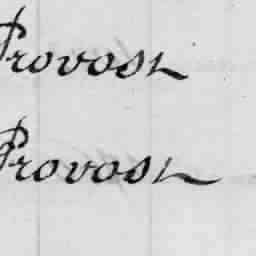 Provost
Provost